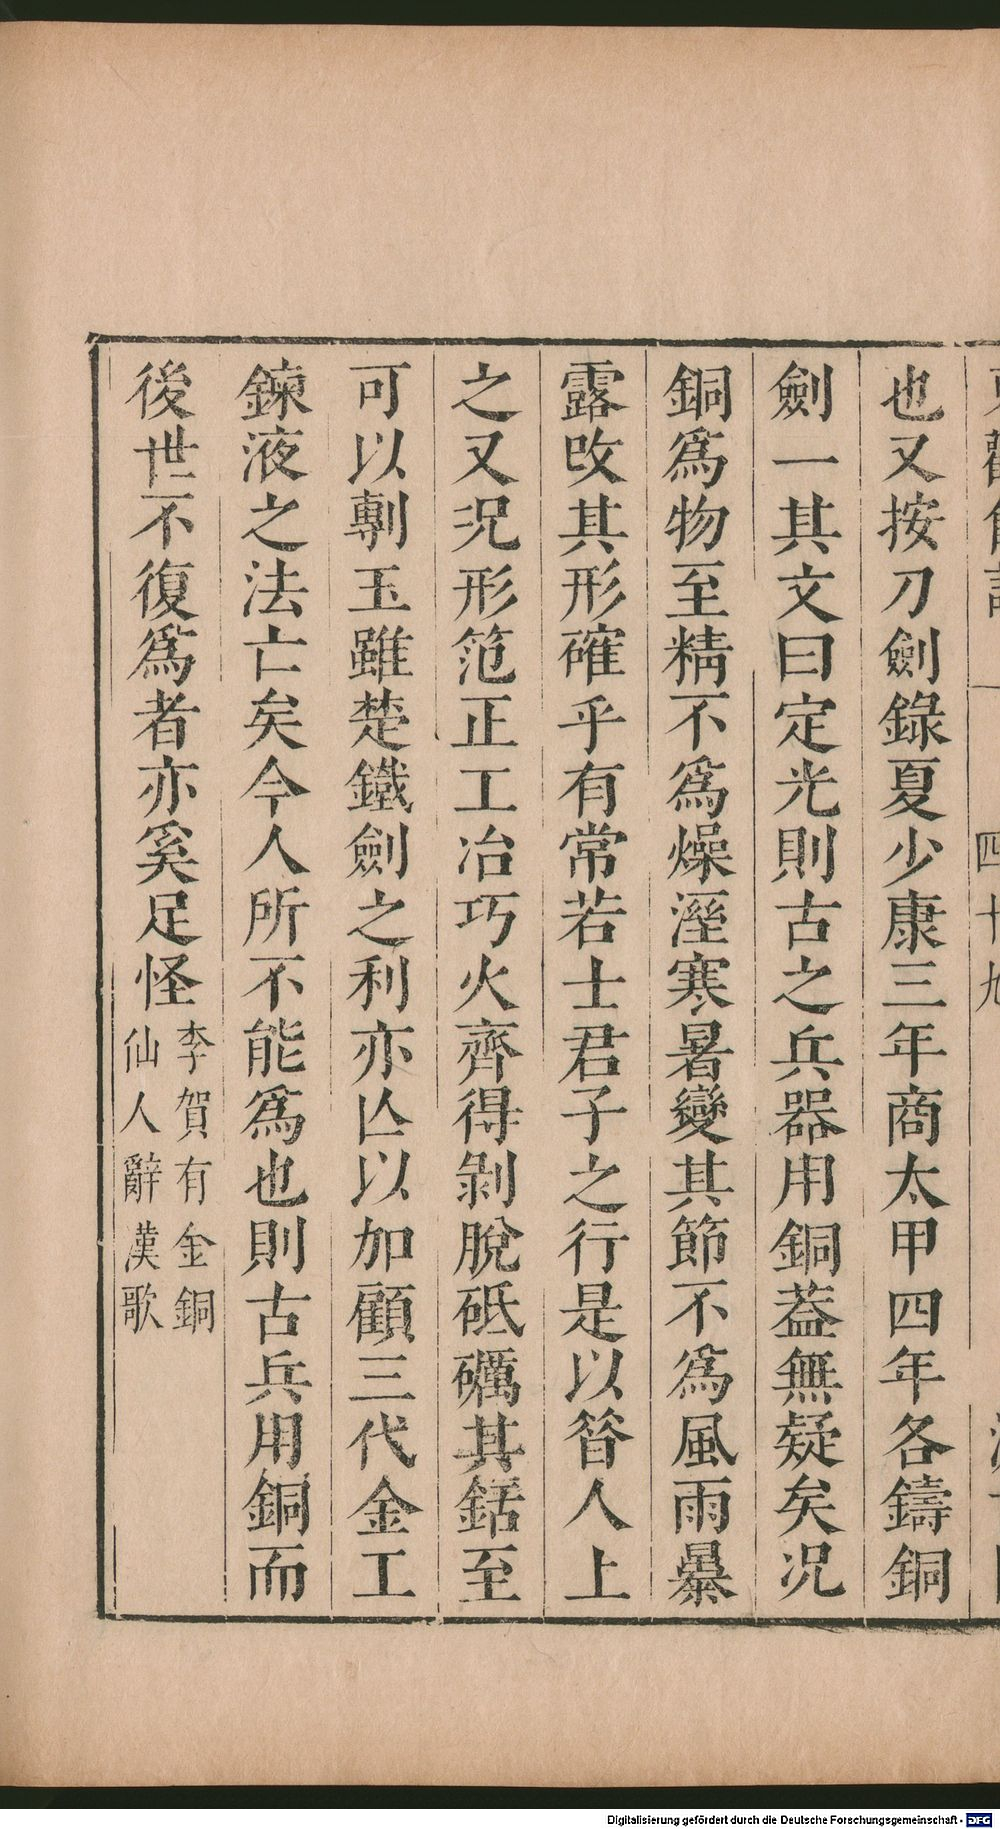 四十九
也又按刀劍錄夏少康三年商太甲四年各鑄銅
劍一其文曰定光則古之兵器用銅葢無疑矣况
銅爲物至精不爲燥溼寒暑變其節不爲風雨暴
露改其形確乎有常若士君子之行是以昝人上
之又况形范正工冶巧火齊得剝脫砥礪其銛至
可以剸玉雖楚鐵劍之利亦亾以加顧三代金工
鍊液之法亡矣今人所不能爲也則古兵用銅而
後世不復爲者亦奚足怪
李賀有金銅
仙人辭漢歌
Digitalisierung gefördert durch die Deutsche Forschungsgemeinschaft - DFG